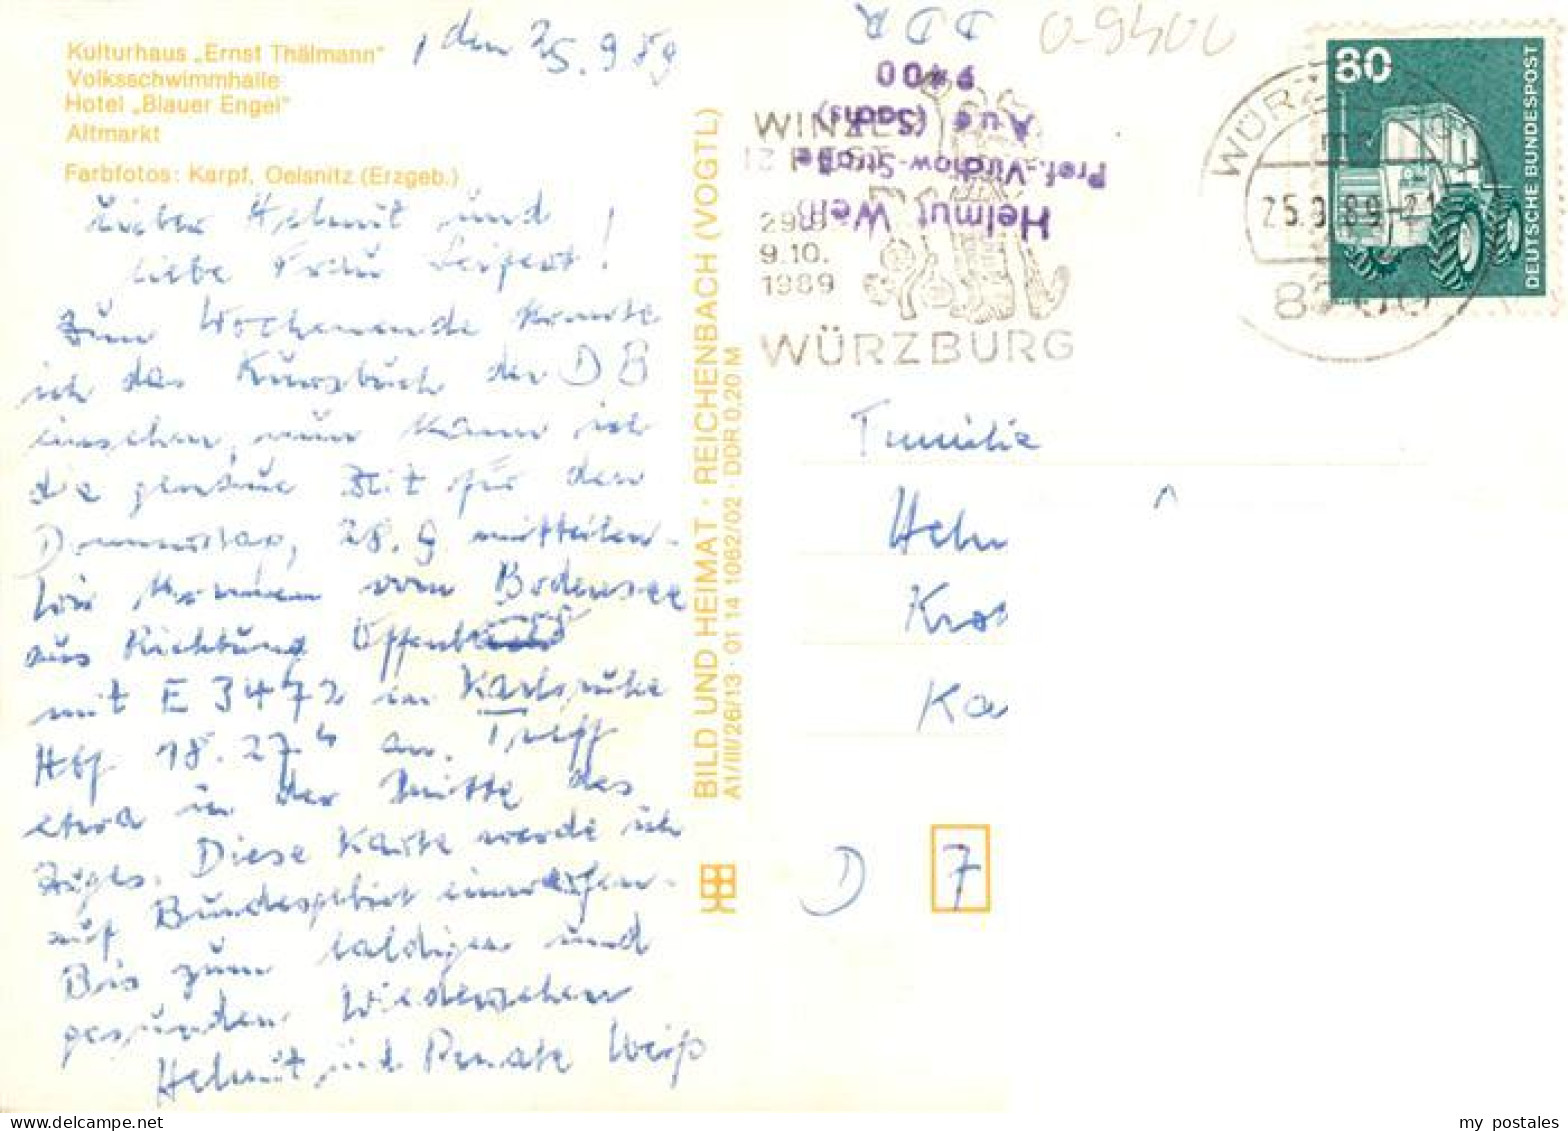 Kulturhaus „Ernst Thälmann"
Volksschwimmhalle
Hotel „Blauer Engel"
Altmarkt
Farbfotos: Karpf, Oelsnitz (Erzgeb.)
, den 25.9.89
Lieber Helmut und
liebe Frau Seifert!
Zum Wochenende konnte
ich das Kursbuch der DB
einsehen, nun kann ich
die genaue Zeit für den
Donnerstag, 28.9. mitteilen.
Wir kommen vom Bodensee
aus Richtung Offenb
mit E 3472 in Karlsruhe
Hbf 18.27 h an. Treff
etwa in der Mitte des
Zuges. Diese Karte werde ich
auf Bundesgebiet einwerfen.
Bis zum baldigen und
gesunden Wiedersehen
Helmut und Renate Weiß
BILD UND HEIMAT · REICHENBACH (VOGTL)
A1/III/26/13 · 01 14 1062/02 · DDR 0,20 M
Helmut Weiß
Prof.-Virchow-Straße
Aue (Sachs)
9400
DDR
0-9400
WINZE
29.9
9.10.
1989
WÜRZBURG
WÜRZ
25.9.89-21
80
DEUTSCHE BUNDESPOST
Familie
Helm
Kro
Ka
D
7
my postales